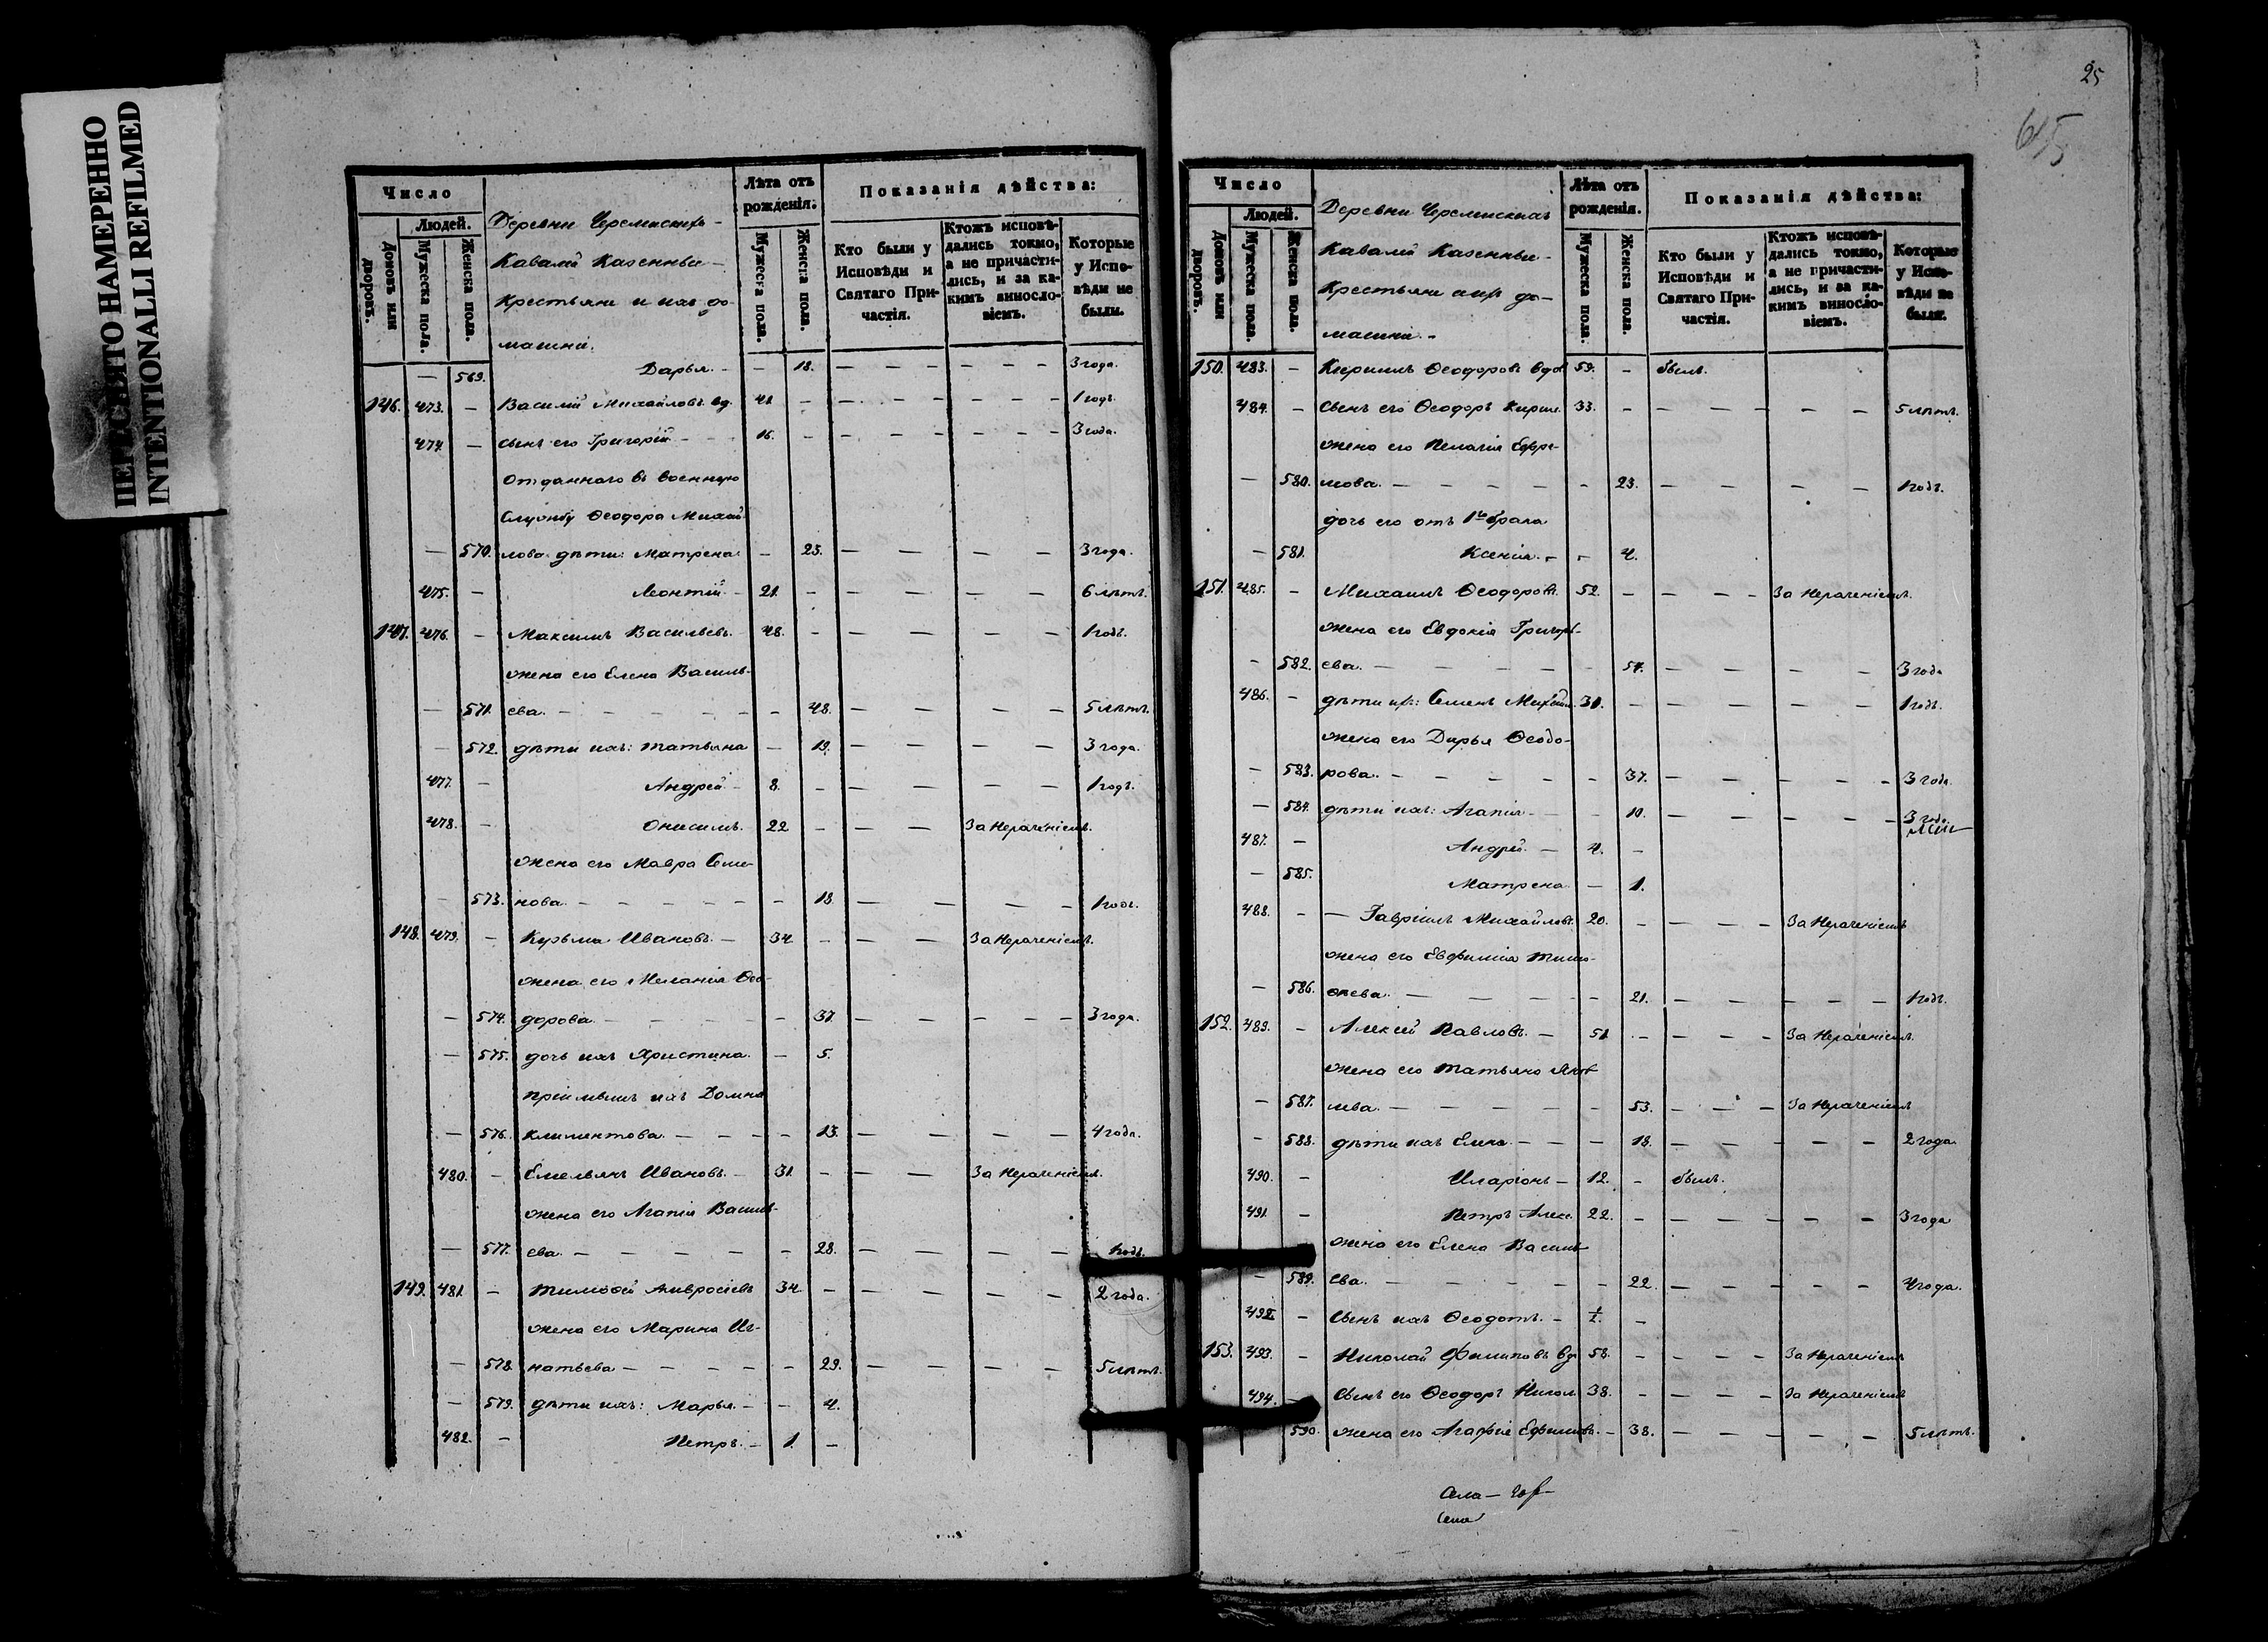 ПЕРЕСНЯТО НАМЕРЕННО
INTENTIONALLI REFILMED
Число
Людей.
Домовъ или дворовъ.
Мужеска пола.
Женска пола.
Деревни Черемискихъ
Кавалей Казенные
Крестьяне и ихъ до-
машніе.
Лѣта отъ рожденія.
Мужеска пола.
Женска пола.
Показанія дѣйства:
Кто были у Исповѣди и Святаго Причастія.
Ктожъ исповѣдались токмо, а не причастились, и за какимъ винословіемъ.
Которые у Исповѣди не были.
— 569. Дарья. — — 18. — — — — — — 3 года.
146. 473. — Василій Михайловъ вд. 41. — — — — — — — 1 годъ.
474. — сынъ его Григорій — 16. — — — — — — — 3 года.
Отданнаго въ военную
Службу Ѳеодора Михай-
— 570. лова дѣти: Матрена. — 23. — — — — 3 года.
475. — Леонтій — 21. — — — — — 6 лѣтъ.
147. 476. — Максимъ Васильевъ. 48. — — — — — 1 годъ.
жена его Елена Василь-
— 571. ева. — — — — — — 48. — — — — 5 лѣтъ.
— 572. дѣти ихъ: Татьяна — 19. — — — — 3 года.
477. — Андрей — 8. — — — — — 1 годъ.
478. — Онисимъ. 22 — — — За Нераченіемъ.
жена его Мавра Семе-
— 573. нова. — — — — — — 18 — — — — 1 годъ.
148. 479. — Кузьма Ивановъ. — 34 — — — За Нераченіемъ.
жена его Меланія Ѳео-
— 574. дорова. — — — — 37. — — — — — 3 года.
— 575. дочь ихъ Христина. — 5.
пріимышъ ихъ Домна
— 576. Климентова. — — — — 13. — — — — 4 года.
480. — Емельянъ Ивановъ. — 31. — — — За Нераченіемъ.
жена его Агапія Василь-
— 577. ева. — — — — — — 28. — — — — 1 годъ.
149. 481. — Тимоѳей Амвросіевъ 34 — — — — — 2 года.
жена его Марина Иг-
— 578. натьева — — — — — 29. — — — — 5 лѣтъ.
— 579. дѣти ихъ: Марья. — — 4.
482. — Петръ. — 1. —
25
615
Число
Людей.
Домовъ или дворовъ.
Мужеска пола.
Женска пола.
Деревни Черемискихъ
Кавалей Казенные
Крестьяне ихъ до-
машніе. —
Лѣта отъ рожденія.
Мужеска пола.
Женска пола.
Показанія дѣйства:
Кто были у Исповѣди и Святаго Причастія.
Ктожъ исповѣдались токмо, а не причастились, и за какимъ винословіемъ.
Которые у Исповѣди не были.
150. 483. — Кирилъ Ѳеодоровъ вдов 59. — былъ.
484. — Сынъ его Ѳеодоръ Кирил. 33. — — — — — — 5 лѣтъ.
жена его Пелагія Ефре-
— 580. мова. — — — — — — 23. — — — — 1 годъ.
дочь его отъ 1го брака
— 581. Ксенія. — — 4.
151. 485. — Михаилъ Ѳеодоровъ. 52. — — — — За Нераченіемъ.
жена его Евдокія Григорь-
— 582. ева. — — — — — 54. — — — — 3 года
486. — дѣти ихъ: Семенъ Михайл. 31. — — — — — — 1 годъ.
жена его Дарья Ѳеодо-
— 583. рова. — — — — — 37. — — — — — 3 года.
— 584. дѣти ихъ: Агапія — — 10. — — — — — 3 года.
487. — Андрей. — 4. —
— 585. Матрена — 1.
488. — — Гавріилъ Михайловъ. 20. — — — — За Нераченіемъ
жена его Евфимія Тимо-
— 586. ѳеева. — — — — — 21. — — — — — 1 годъ.
152. 489. — Алексій Павловъ. — 51 — — — — За Нераченіемъ.
жена его Татьяна Яков-
— 587. лева. — — — — — — 53. — — — За Нераченіемъ
— 588. дѣти ихъ Елена. — — — 18. — — — — — 2 года.
490. — Иларіонъ — 12. — былъ.
491. — Петръ Алекс. 22. — — — — — — 3 года
жена его Елена Василь-
— 589. ева. — — — — — — 22. — — — — — 4 года.
492 — Сынъ ихъ Ѳеодотъ. — —
153. 493. — Николай Филиповъ вд. 58. — — — — За Нераченіемъ
494. — Сынъ его Ѳеодоръ Никол. 38. — — — — За Нераченіемъ
590. жена его Агафія Ефимова. — 38. — — — — — 5 лѣтъ.